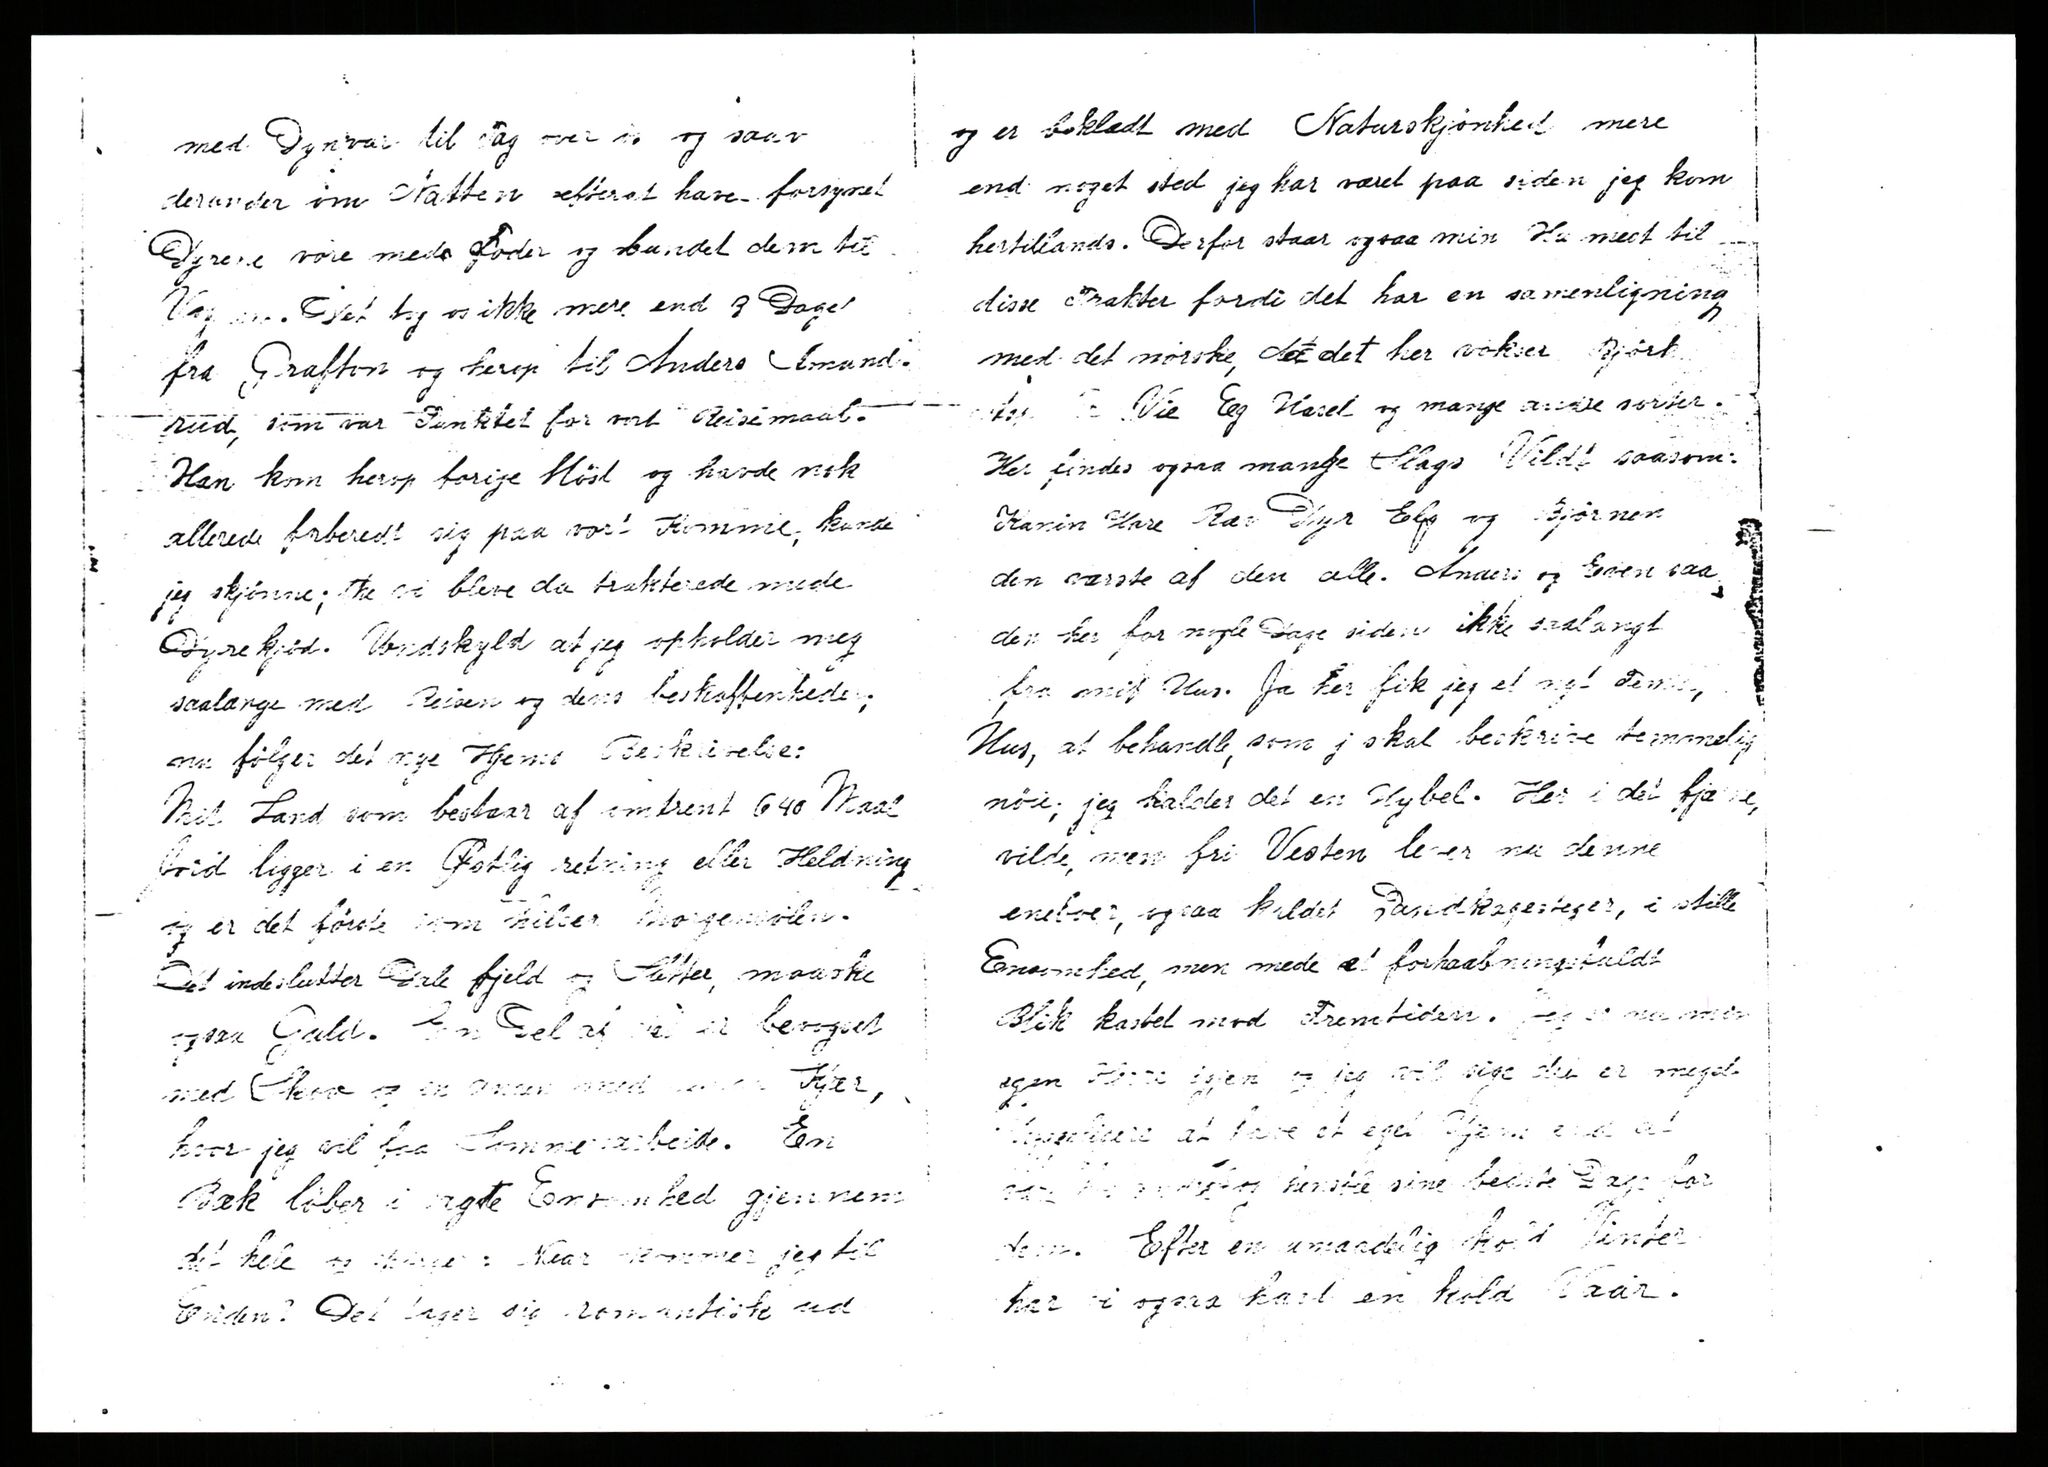 med Dynvar til Tag over os og saav
derunder om Natten efterat have forsynet
Dyrene vore mede Foder og bundet dem til
Vognen. Det tog os ikke mere end 3 Dage
fra Grafton og herop til Anders Amund-
rud, som var Punktet for vort Reisemaal.
Han kom herop forige Høst og havde nok
allerede forberedt sig paa vort Komme, kunde
jeg skjønne; the vi bleve da trakterede mede
Dyrekjød. Undskyld at jeg opholder meg
saalænge med Reisen og dens beskaffenheder;
nu følger det nye Hjems Beskrivelse:
Mit Land som bestaar af omtrent 640 Maal
Jord ligger i en Østlig retning eller Heldning
og er det første som hilser Morgensolen.
Det indeslutter Dale fjeld og Sletter, maaske
ogsaa Guld. En Del af det er bevogset
med Skov og en anden med Kjær,
hvor jeg vil faa Sommerarbeide. En
Bæk løber i sagte Ensomhed gjennem
det hele og : Naar kommer jeg til
Enden? Det tager sig romantiske ud
og er beklædt med Naturskjønhed mere
end noget sted jeg har været paa siden jeg kom
hertillands. Derfor staar ogsaa min Hu mest til
disse Trakter fordi det har en samenligning
med det norske, det her vokser Bjørk
Vie Eg Hasel og mange andre sorter.
Her findes ogsaa mange Slags Vildt saasom:
Kanin Hare Ræv Dyr Elg og Bjørnen
den værste af den alle. Anders og Even saa
den her for nogle Dage siden ikke saalangt
fra mit Hus. Ja her fik jeg et nyt
Hus, at behandle, som j skal beskrive temmelig
nøie; jeg kalder det en Hybel. Her i det fjærne,
vilde, men fri Vesten lever nu denne
eneboer, ogsaa kaldet Pandkagesteger, i stille
Ensomhed, men mede et forhaabningsfuldt
Blik kastet mod Fremtiden. Jeg er nu min
egen Herre igjen og jeg vil sige det er meget
hyggeligere at have et eget Hjem end at
og henslie sine bedste Dage for
dem. Efter en umaadelig kold Vinter
har vi ogsaa havt en kold Vaar.